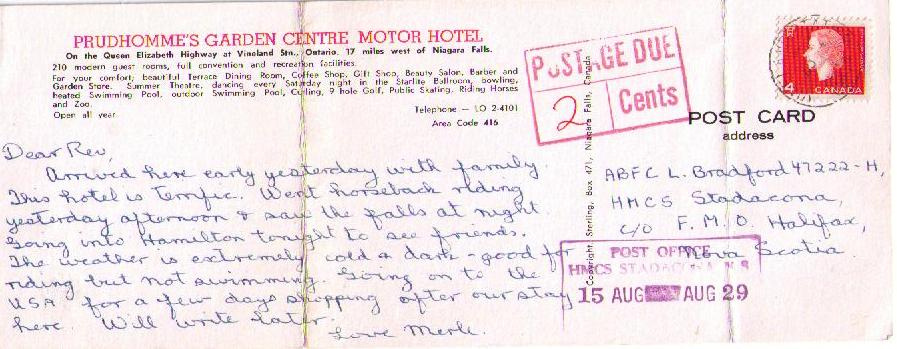 PRUDHOMME'S GARDEN CENTRE MOTOR HOTEL
On the Queen Elizabeth Highway at Vineland Stn., Ontario. 17 miles west of Niagara Falls.
210 modern guest rooms, full convention and recreation facilities.
For your comfort; beautiful Terrace Dining Room, Coffee Shop, Gift Shop, Beauty Salon, Barber and
Garden Store. Summer Theatre, dancing every Saturday night in the Starlite Ballroom, bowling,
heated Swimming Pool, outdoor Swimming Pool, Curling, 9 hole Golf, Public Skating, Riding Horses
and Zoo.
Open all year
Telephone — LO 2-4101
Area Code 416
Dear Rev,
Arrived here early yesterday with family.
This hotel is terrific. Went horseback riding
yesterday afternoon & saw the falls at night.
Going into Hamilton tonight to see friends.
The weather is extremely cold & dark - good for
riding but not swimming. Going on to the
USA for a few days shopping after our stay
here. Will write later.
Love Merle.
Copyright Sterling, Box 471, Niagara Falls, Canada
POSTAGE DUE
2 Cents
4 CANADA
POST CARD
address
ABFC L. Bradford 47222-H,
HMCS Stadacona,
c/o F.M.O. Halifax,
Nova Scotia
POST OFFICE
HMCS STADACONA N S
15 AUG AUG 29